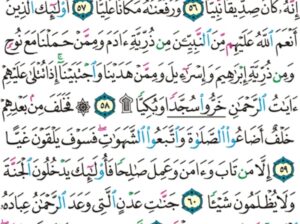 إِنَّهُۥ كَانَ صِدِّيقًا نَّبِيًّا ٥٦ وَرَفَعْنَٰهُ مَكَانًا عَلِيًّا ٥٧ أُو۟لَٰٓئِكَ ٱلَّذِينَ
أَنْعَمَ ٱللَّهُ عَلَيْهِم مِّنَ ٱلنَّبِيِّـۧنَ مِن ذُرِّيَّةِ ءَادَمَ وَمِمَّنْ حَمَلْنَا مَعَ نُوحٍ
وَمِن ذُرِّيَّةِ إِبْرَٰهِيمَ وَإِسْرَٰٓءِيلَ وَمِمَّنْ هَدَيْنَا وَٱجْتَبَيْنَآ إِذَا تُتْلَىٰ عَلَيْهِمْ
ءَايَٰتُ ٱلرَّحْمَٰنِ خَرُّوا۟ سُجَّدًا وَبُكِيًّا ۩ ٥٨ ۞ فَخَلَفَ مِنۢ بَعْدِهِمْ
خَلْفٌ أَضَاعُوا۟ ٱلصَّلَوٰةَ وَٱتَّبَعُوا۟ ٱلشَّهَوَٰتِ ۖ فَسَوْفَ يَلْقَوْنَ غَيًّا
٥٩ إِلَّا مَن تَابَ وَءَامَنَ وَعَمِلَ صَٰلِحًا فَأُو۟لَٰٓئِكَ يَدْخُلُونَ ٱلْجَنَّةَ
وَلَا يُظْلَمُونَ شَيْـًٔا ٦٠ جَنَّٰتِ عَدْنٍ ٱلَّتِى وَعَدَ ٱلرَّحْمَٰنُ عِبَادَهُۥ